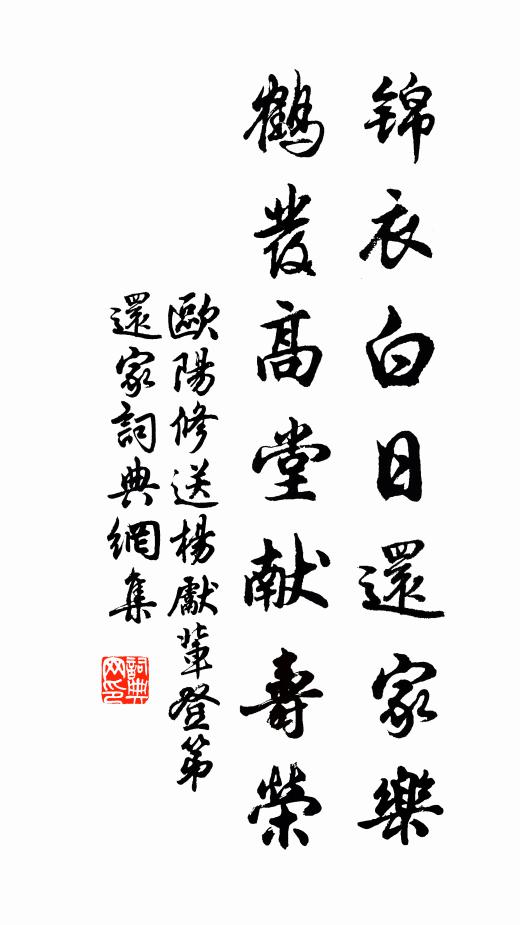 錦衣白日還家樂
鶴發高堂献壽榮
歐陽修送楊獻輩登第
還家詞典網集
詞典網印